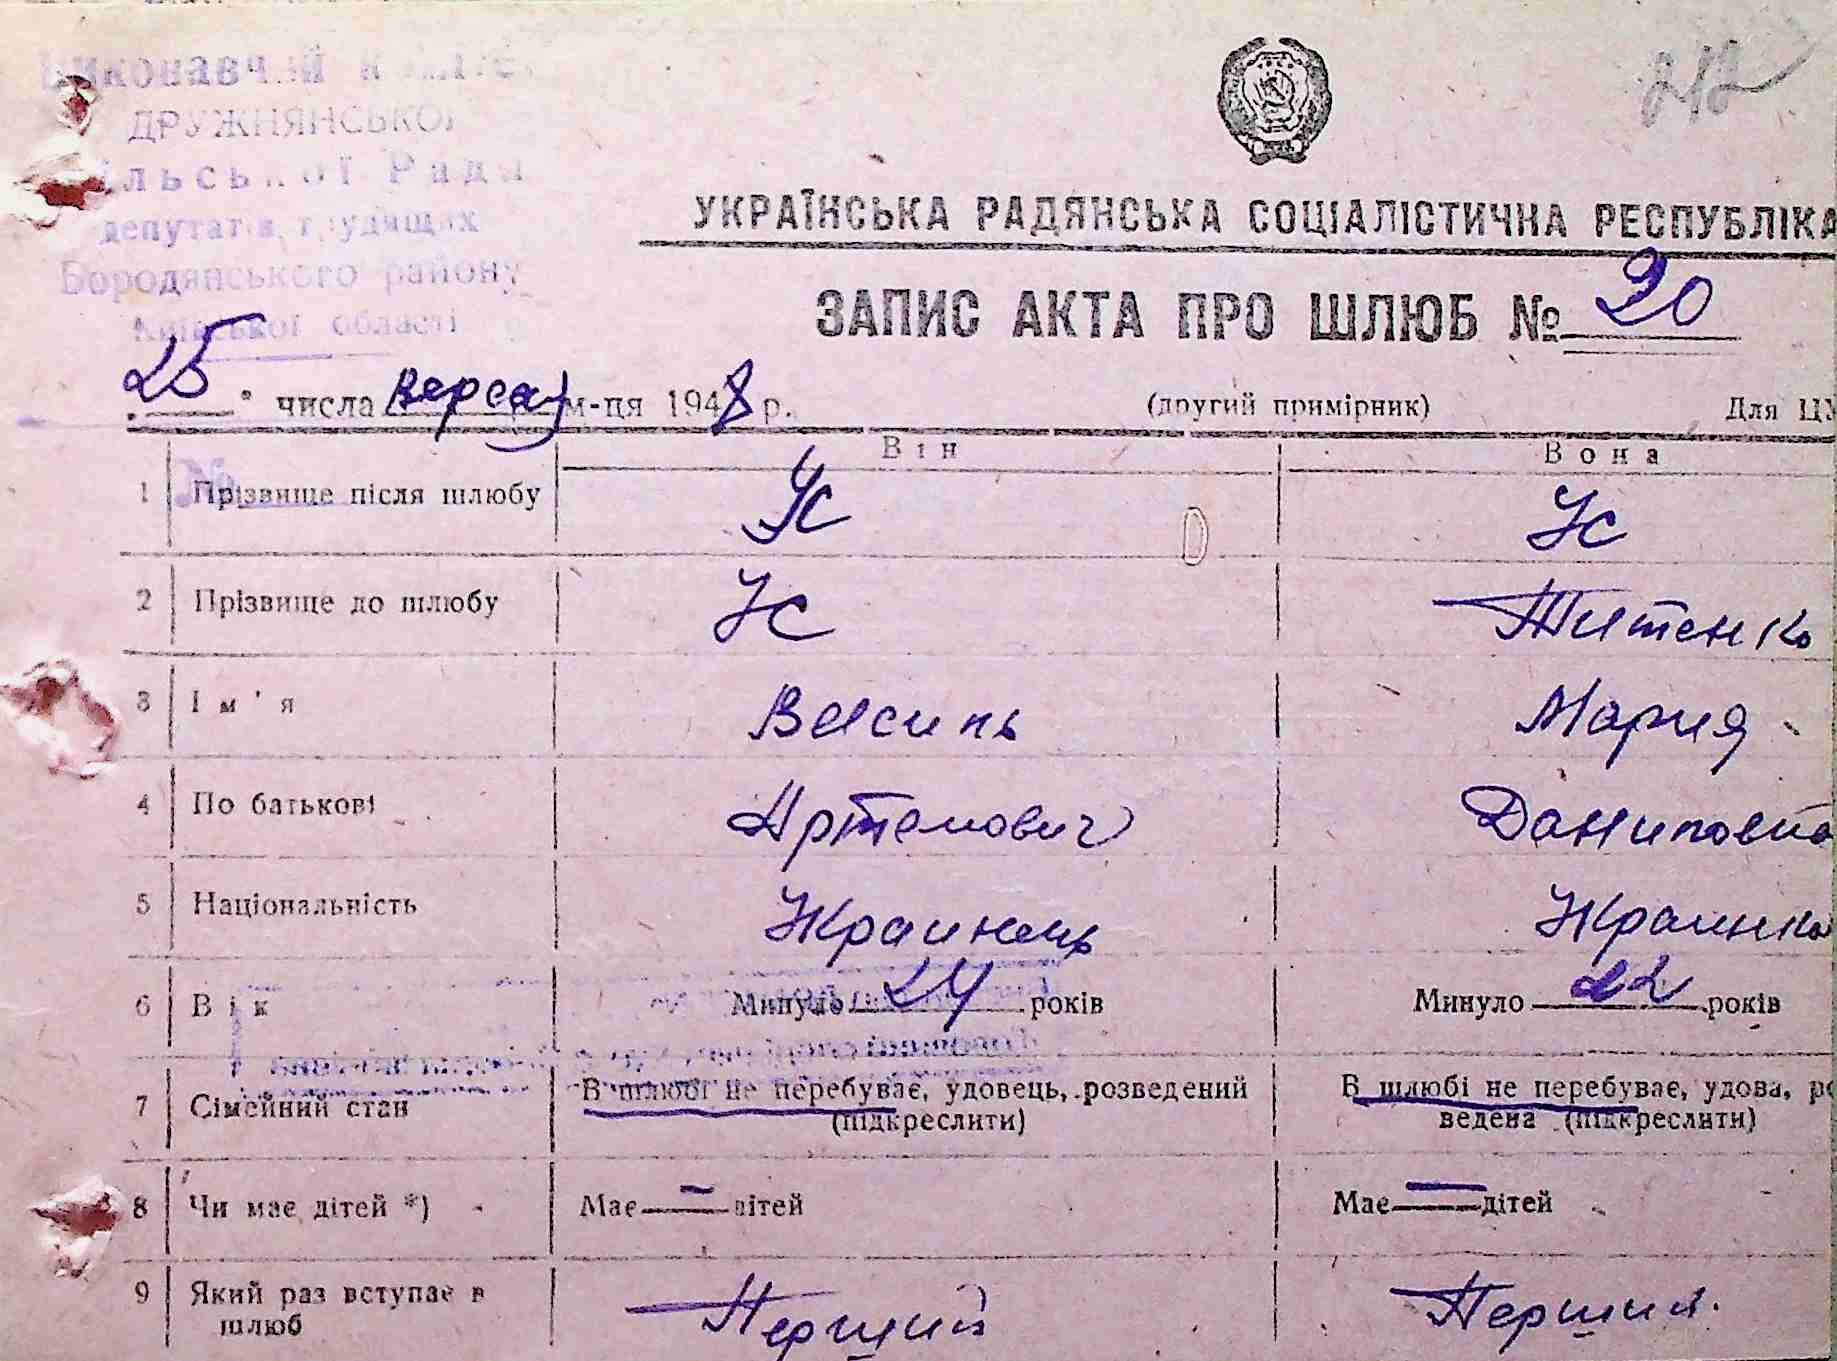 Виконавчий коміте
ДРУЖНЯНСЬКОЇ
ільської Ради
депутатів трудящих
Бородянського району
Київської області
212
УКРАЇНСЬКА РАДЯНСЬКА СОЦІАЛІСТИЧНА РЕСПУБЛІКА
ЗАПИС АКТА ПРО ШЛЮБ № 20
25 " числа м-ця 1948 р. (другий примірник) Для ЦУ
№
Він Вона
1 Прізвище після шлюбу Ус Ус
2 Прізвище до шлюбу Ус Титенко
3 Ім'я Василь Мария
4 По батькові Артемович Даниловна
5 Національність Украинець Украинка
6 Вік Минуло 24 років Минуло 22 років
7 Сімейний стан В шлюбі не перебуває, удовець, розведений (підкреслити) В шлюбі не перебуває, удова, ро
ведена (підкреслити)
8 Чи має дітей *) Має — дітей Має — дітей
9 Який раз вступає в Перший Перший.
шлюб